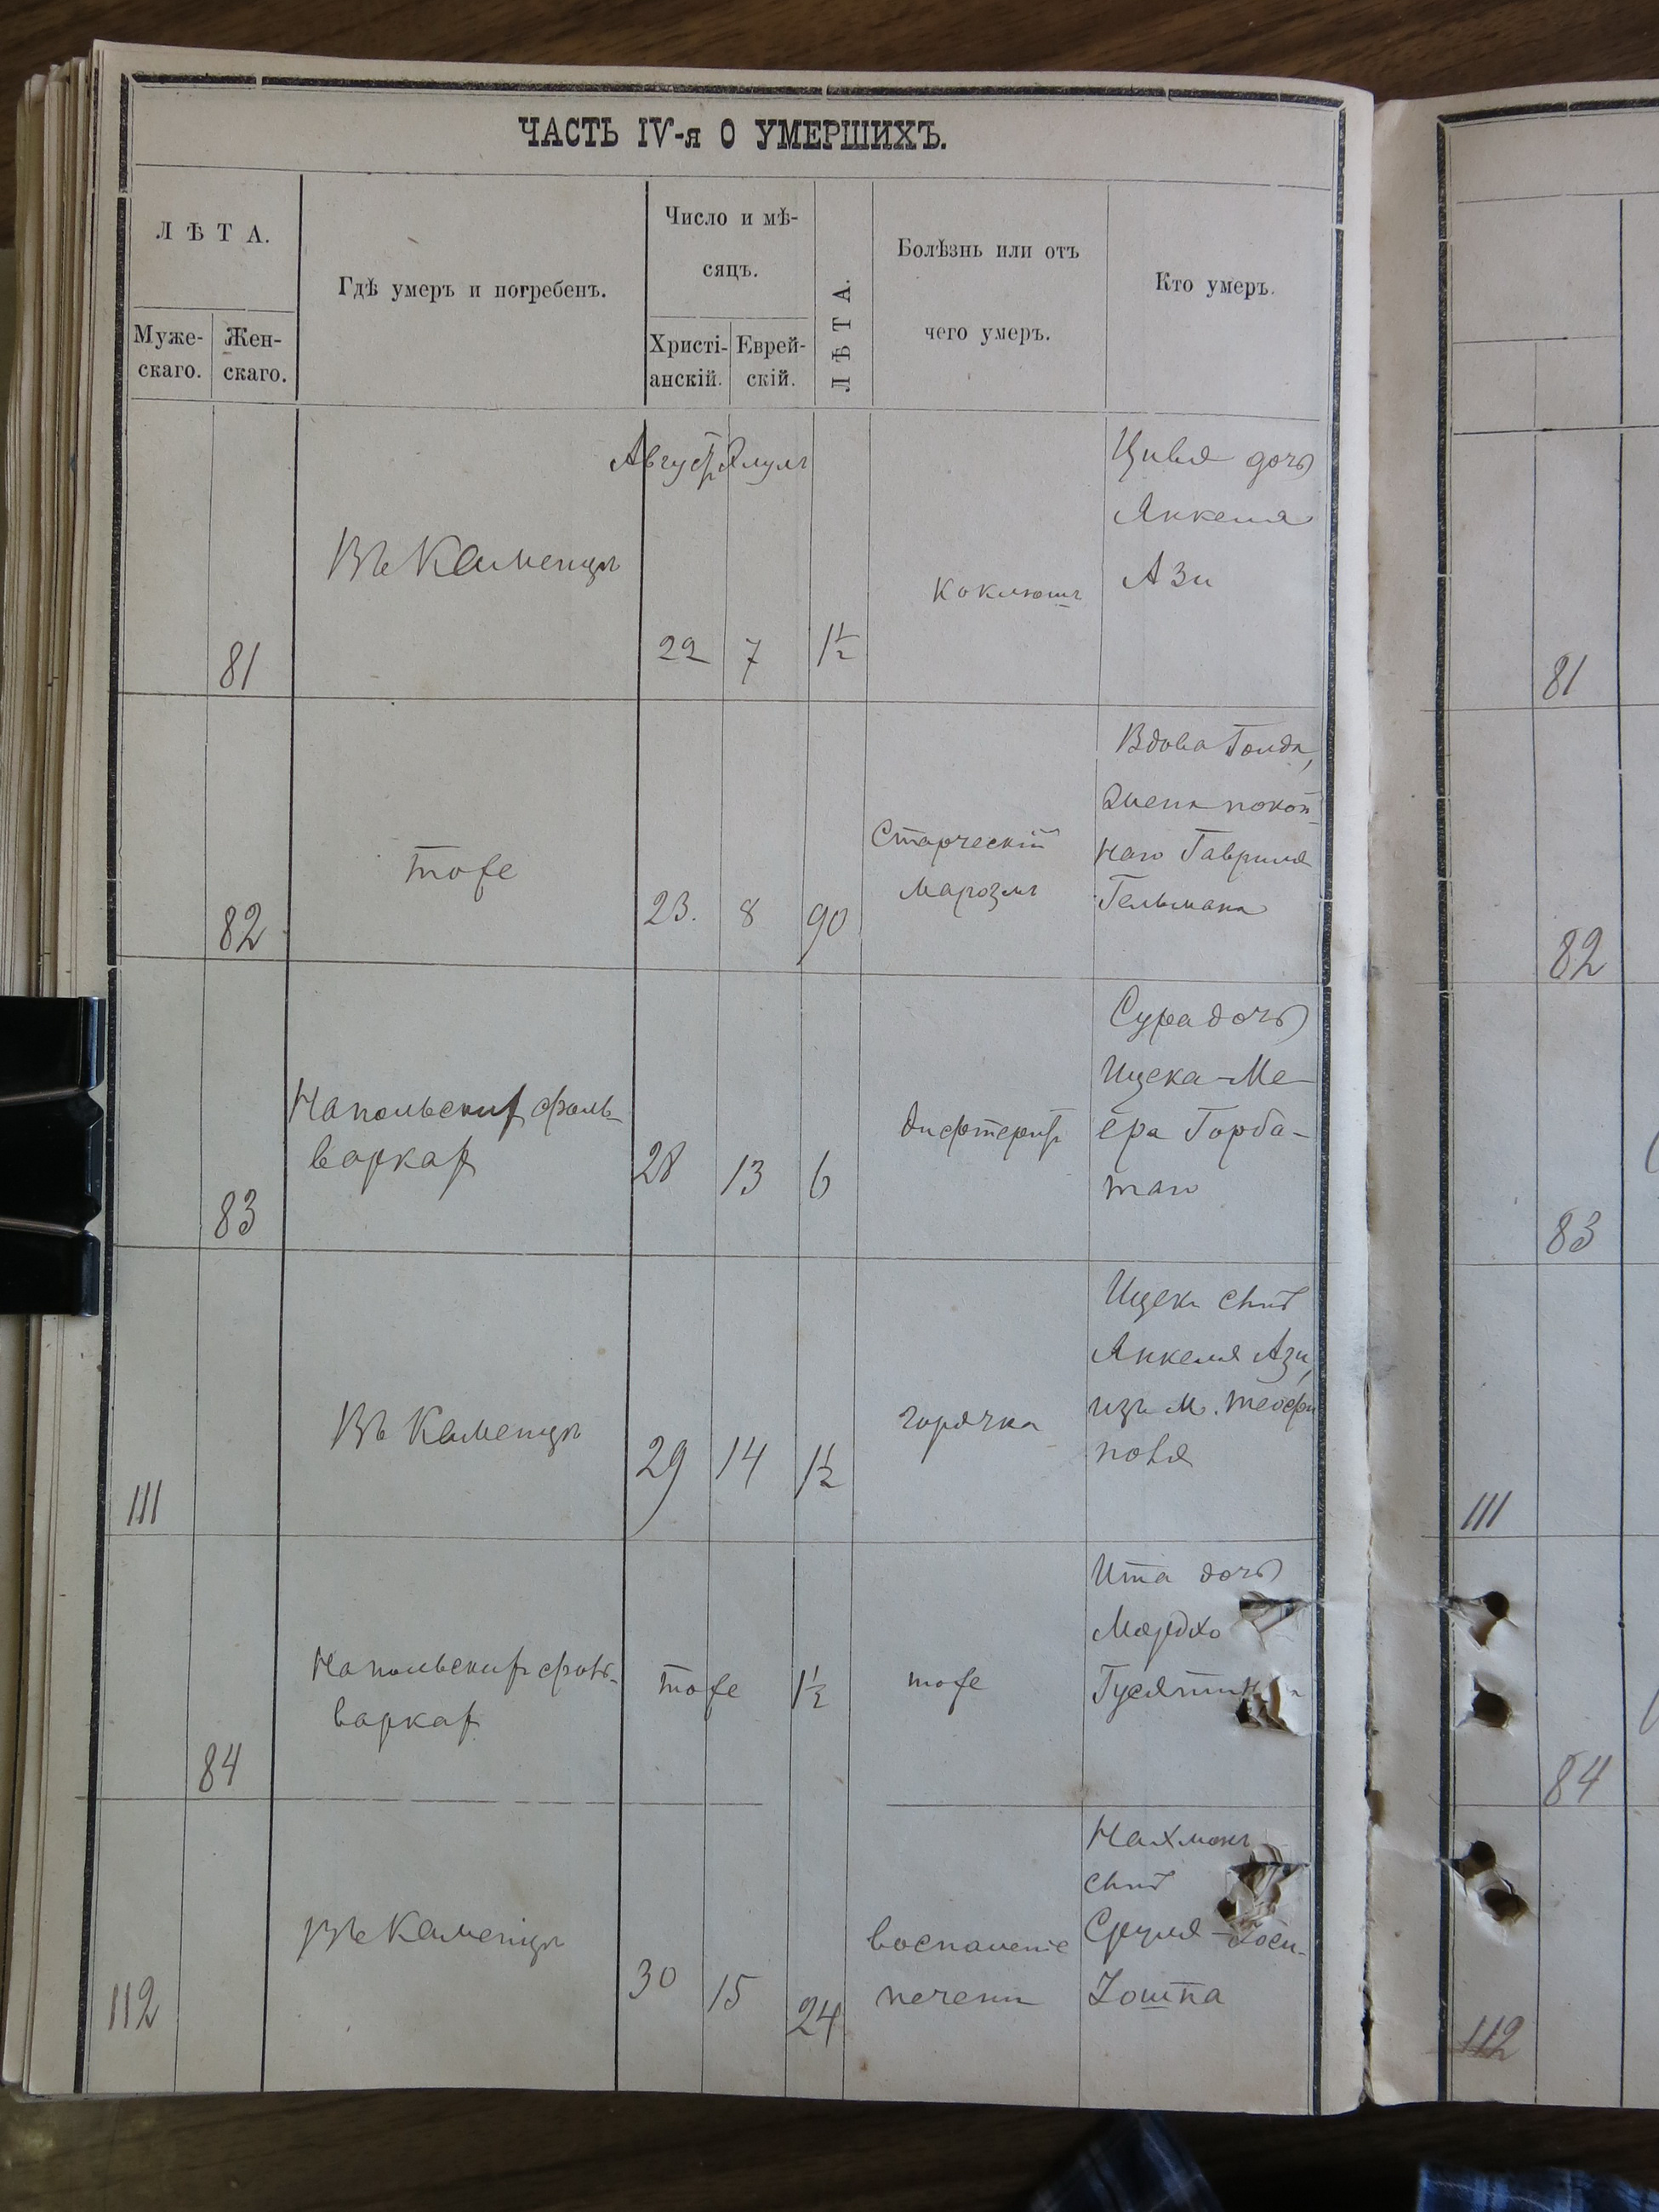 ЧАСТЬ IV-я О УМЕРШИХЪ.
ЛѢТА.
Муже-
скаго.
Жен-
скаго.
Гдѣ умеръ и погребенъ.
Число и мѣ-
сяцъ.
Христі-
анскій.
Еврей-
скій.
ЛѢТА.
Болѣзнь или отъ
чего умеръ.
Кто умеръ.
Августъ Элулъ
81
Въ Каменцѣ
22
7
1½
Коклюшъ
Цивья дочь
Янкеля
Ази
82
тоже
23.
8
90
Старческій
маразмъ
Вдова Голда,
жена покой-
наго Гавриля
Гельмана
83
На польскихъ фоль-
варкахъ
28
13
6
дифтеритъ
Сура дочь
Ицека-Ме-
ера Горба-
таго
111
Въ Каменцѣ
29
14
1½
горячка
Ицекъ сынъ
Янкеля Ази,
изъ м. Теофи
поля
84
На польскихъ фоль-
варкахъ
тоже
1½
тоже
Ита дочь
Мордхо
112
Въ Каменцѣ
30
15
24
воспаленіе
печени
Нахманъ
сынъ
Сруля
81
82
83
111
84
112